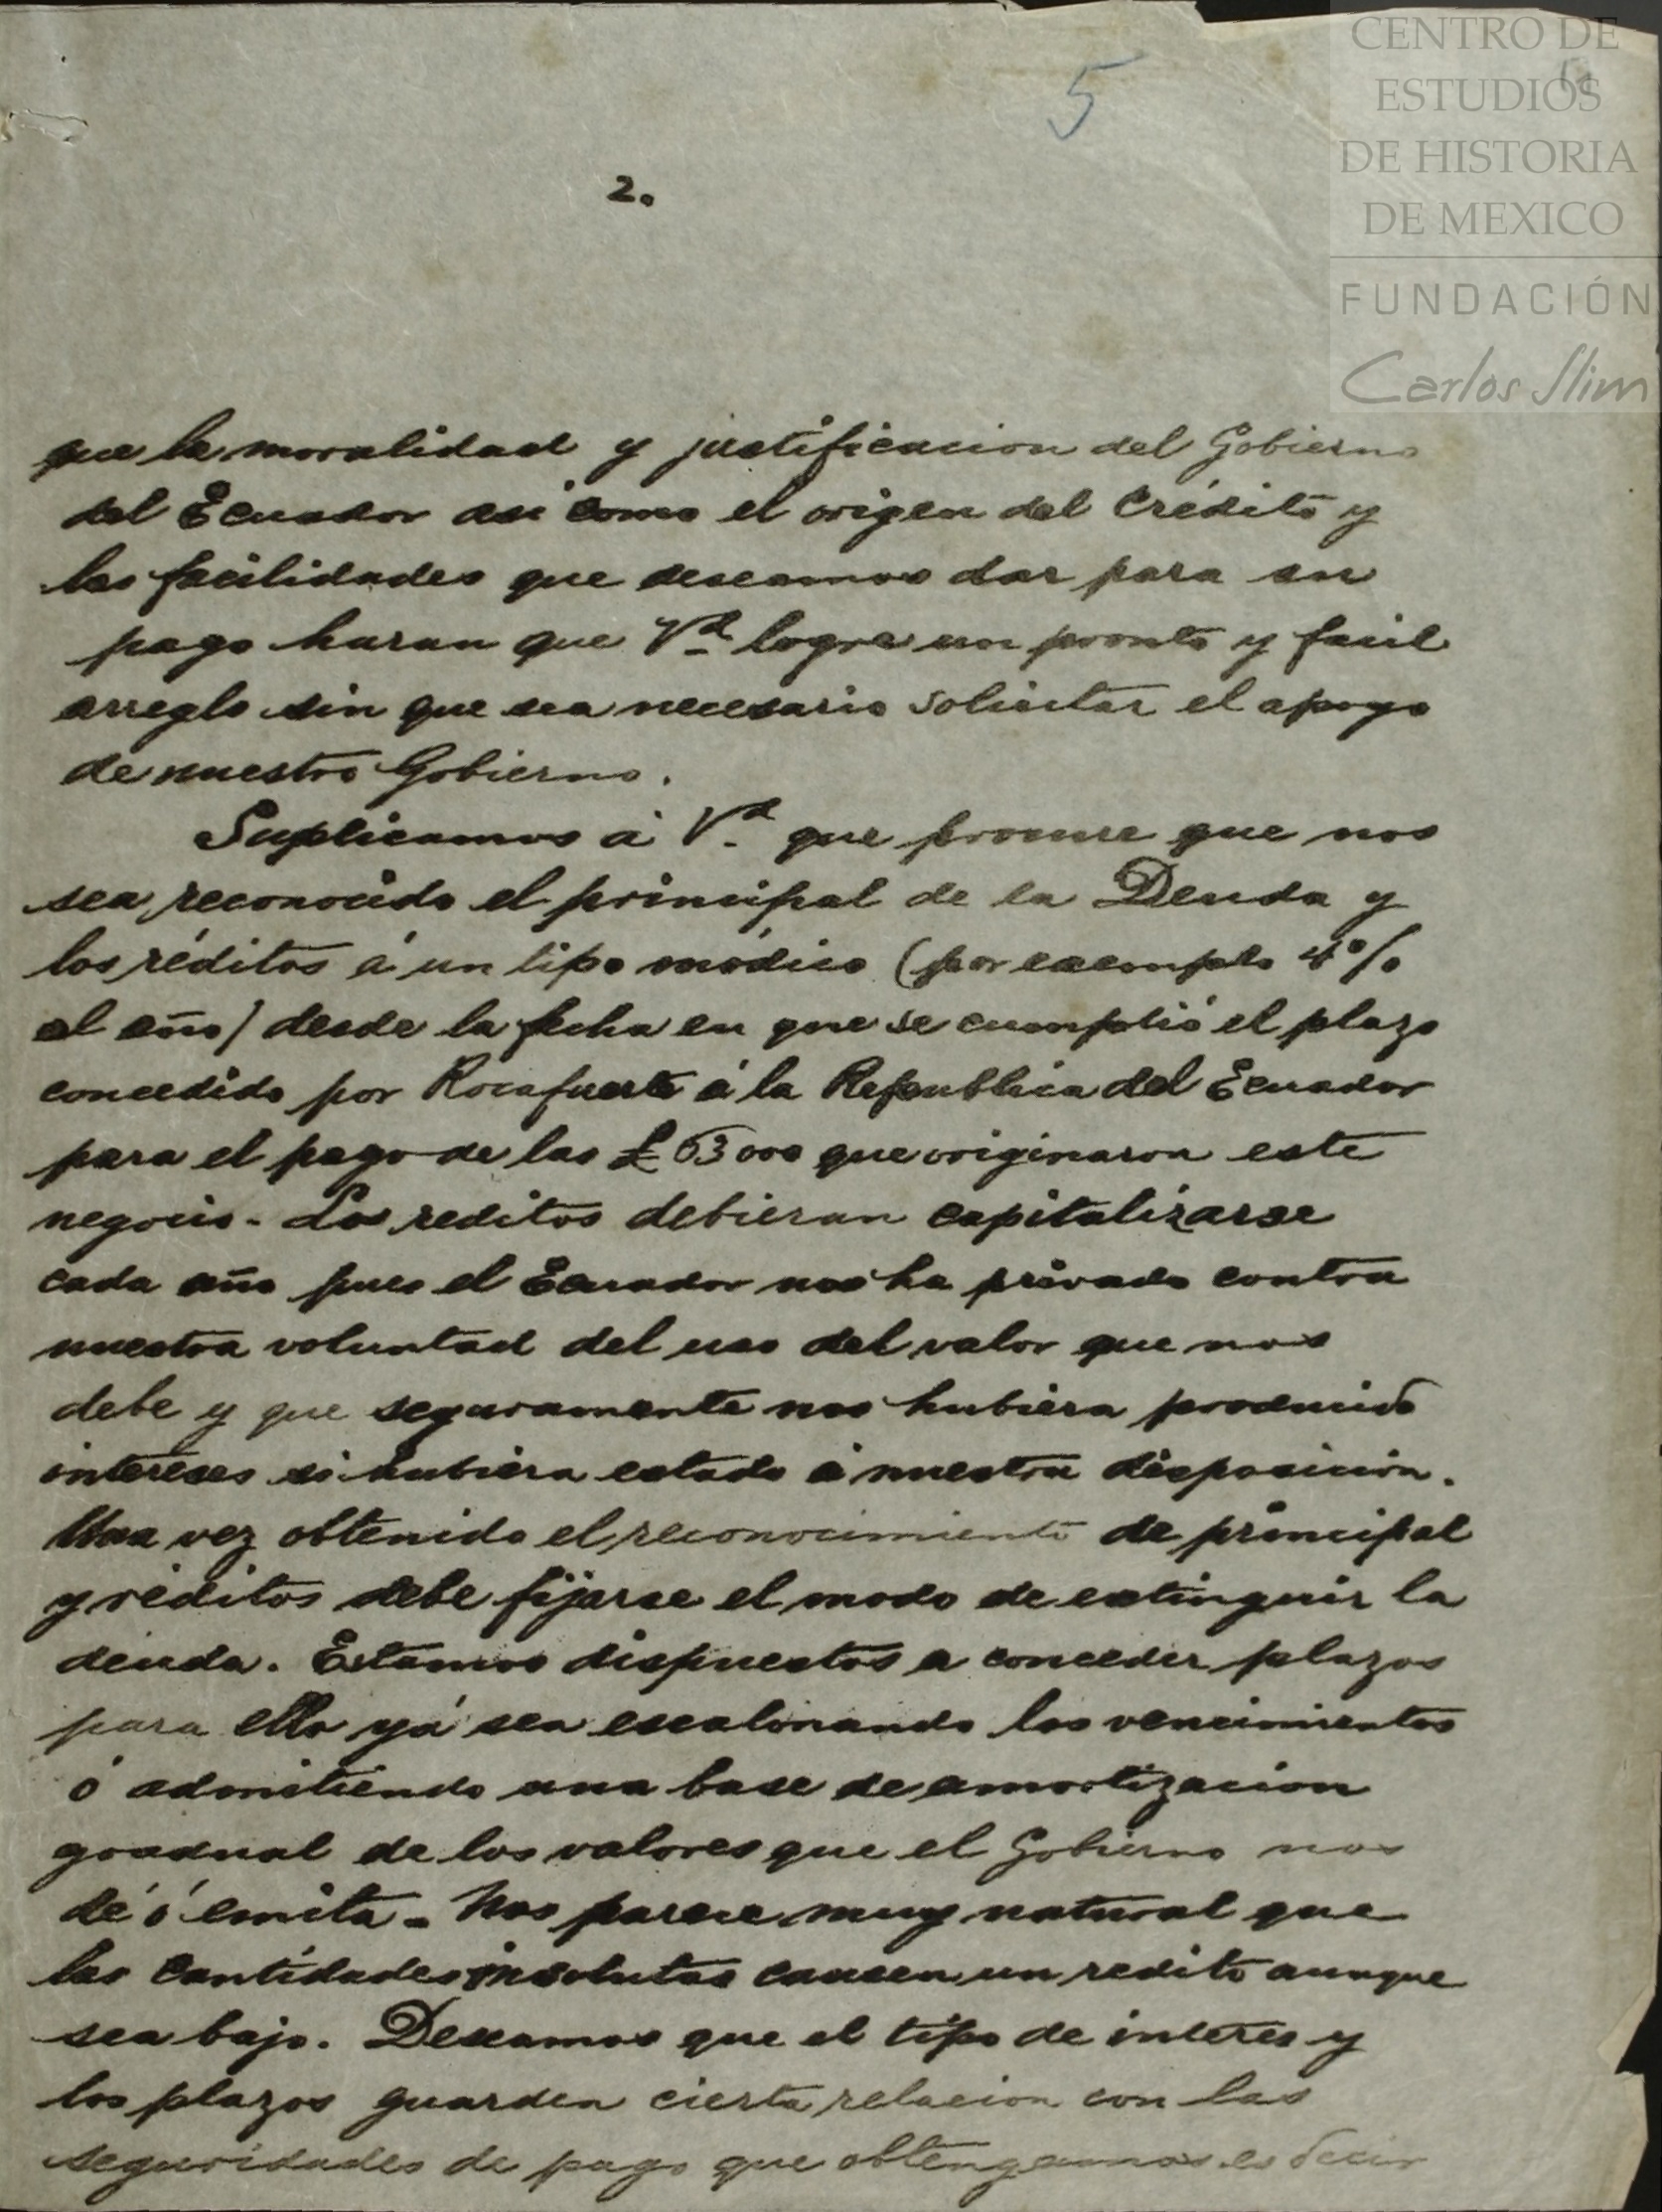 CENTRO DE
ESTUDIOS
DE HISTORIA
DE MEXICO
FUNDACIÓN
Carlos Slim
5
2.
que la moralidad y justificacion del Gobierno
del Ecuador asi como el origen del Crédito y
las facilidades que deseamos dar para su
pago haran que Vd logre un pronto y facil
arreglo sin que sea necesario solicitar el apoyo
de nuestro Gobierno.
Suplicamos á Vd. que procure que nos
sea reconocido el principal de la Deuda y
los réditos á un tipo módico (por exemplo 4%
al año) desde la fecha en que se cumplió el plazo
concedido por Rocafuerte á la Republica del Ecuador
para el pago de las £ 63000 que originaron este
negocio. Los reditos debieran capitalizarse
cada año pues el Ecuador nos ha privado contra
nuestra voluntad del uso del valor que nos
debe y que seguramente nos hubiera producido
intereses si hubiera estado á nuestra disposicion.
Una vez obtenido el reconocimiento de principal
y réditos debe fijarse el modo de extinguir la
deuda. Estamos dispuestos a conceder plazos
para ello yá sea escalonando los vencimientos
ó admitiendo una base de amortizacion
gradual de los valores que el Gobierno nos
dé ó emita. Nos parece muy natural que
las Cantidades insolutas causen un redito aunque
sea bajo. Deseamos que el tipo de interes y
los plazos guarden cierta relacion con las
seguridades de pago que obtengamos es decir